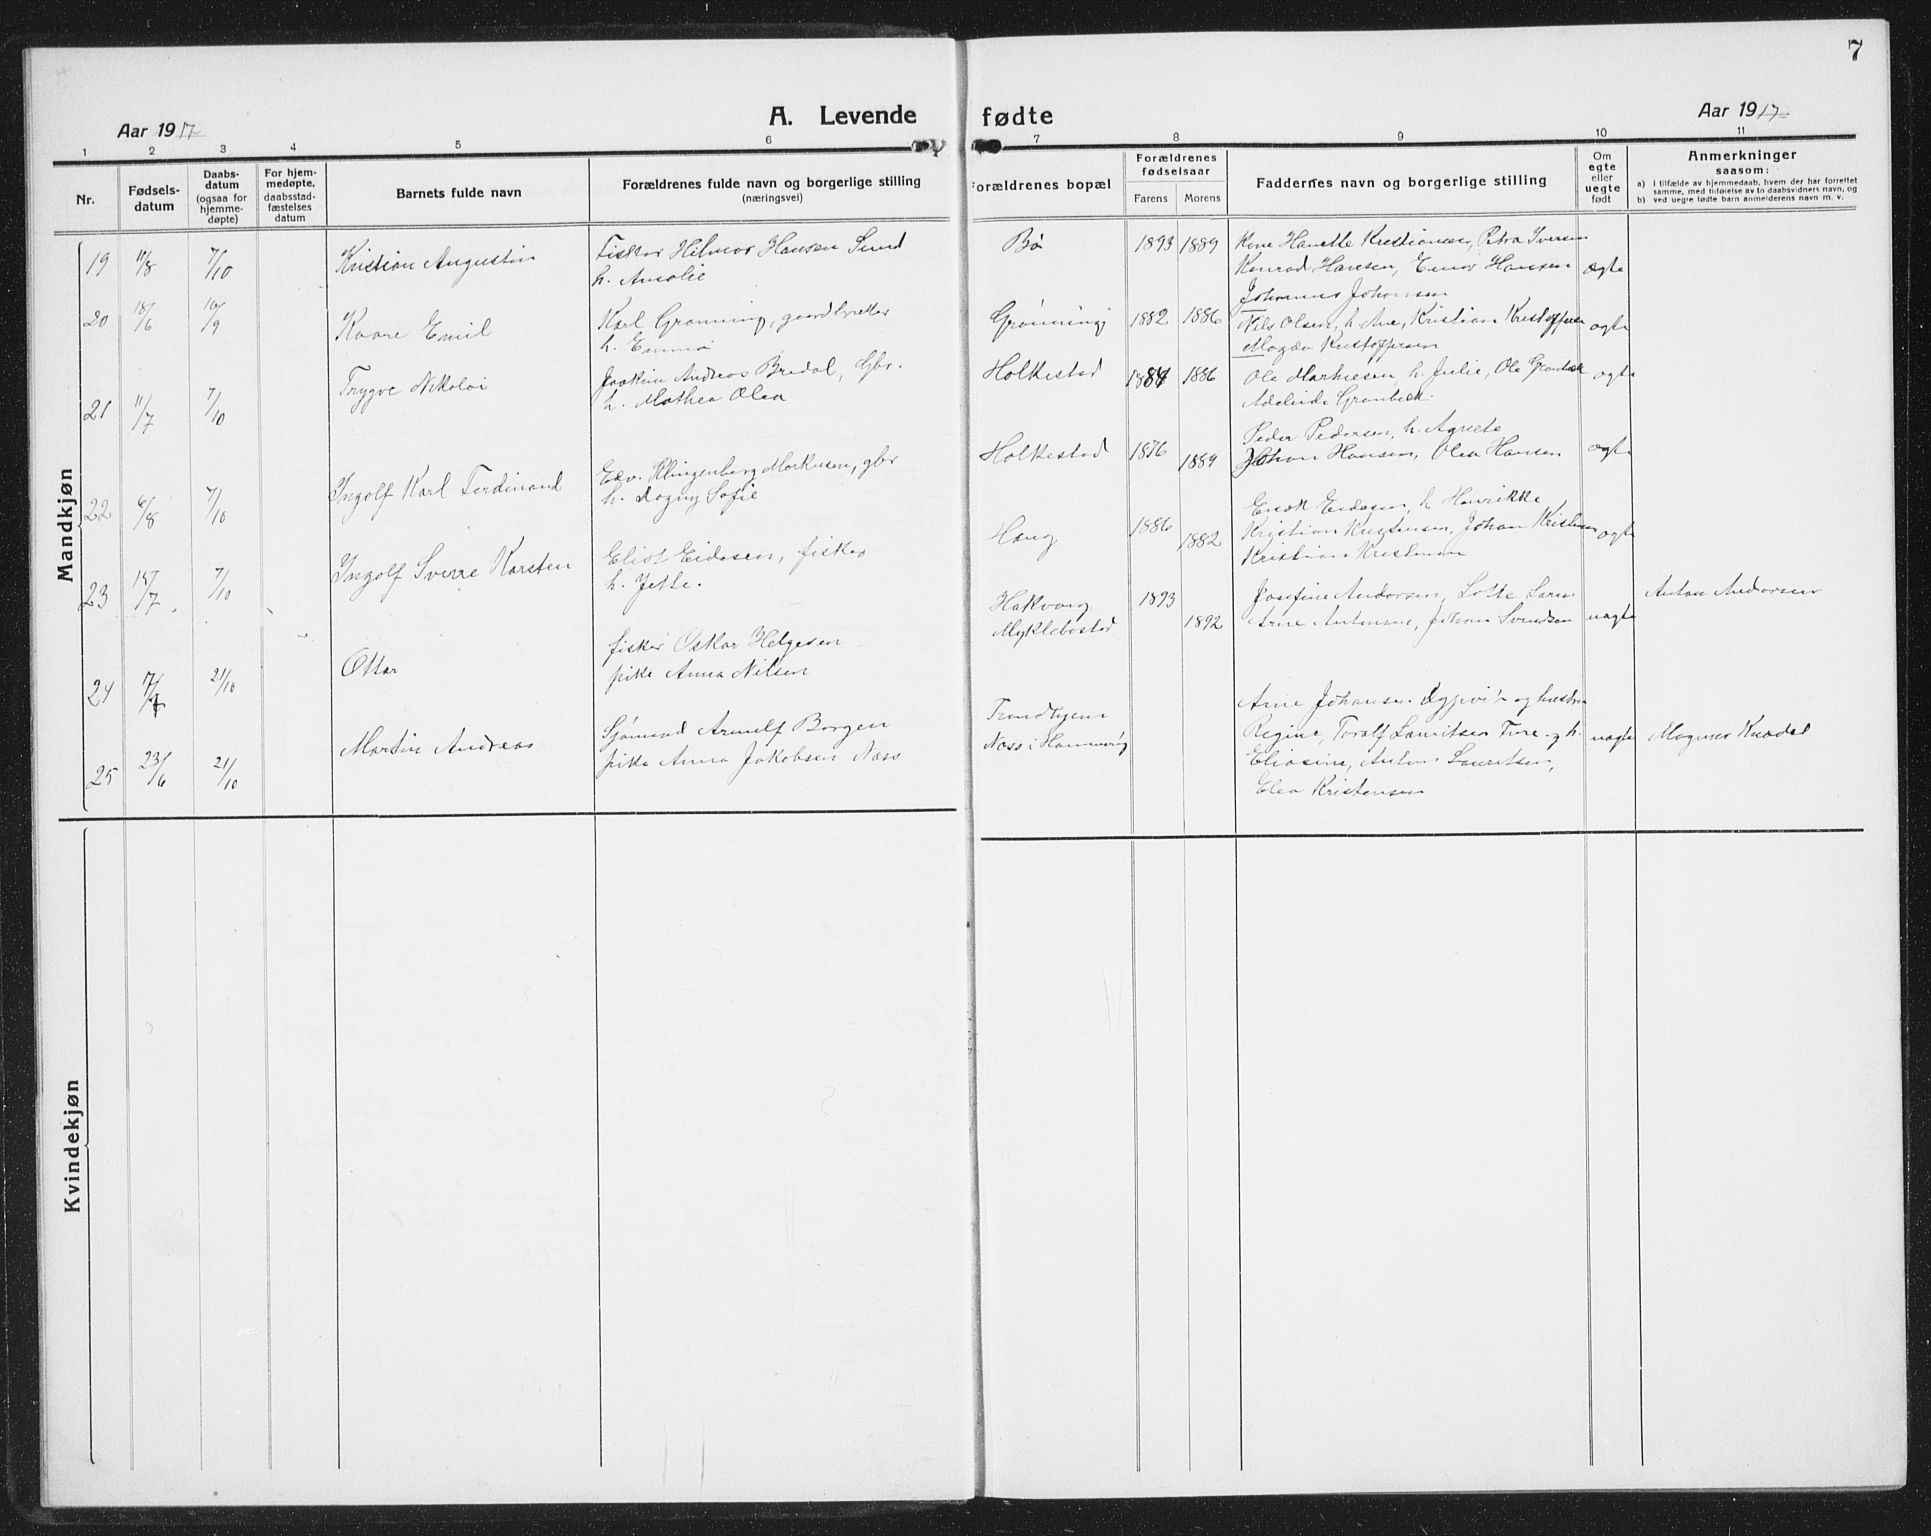 7
Aar 1917
A. Levende fødte
Aar 1917
1 2 3 4 5 6 7 8 9 10 11
Nr.
Fødsels-
datum
Daabs-
datum
(ogsaa for
hjemme-
døpte)
For hjem-
medøpte,
daabsstad-
fæstelses
datum
Barnets fulde navn
Forældrenes fulde navn og borgerlige stilling
(næringsvei)
Forældrenes bopæl
Forældrenes
fødselsaar
Farens Morens
Faddernes navn og borgerlige stilling
Om
egte
eller
uegte
født
Anmerkninger
saasom:
a) i tilfælde av hjemmedaab, hvem der har forrettet
samme, med tilføielse av to daabsvidners navn, og
b) ved uegte fødte barn anmelderens navn m. v.
Mandkjøn
19 11/8 7/10 Kristian Augustin
Fisker Hilmar Hansen Sund
h. Amalie
Bø 1893 1889
Kone Hanette Kristiansen, Petra Iversen
Konrad Hansen, Einar Hansen
Johannes Johansen
ægte
20 18/6 16/9 Kaare Emil
Karl Grønning, gaardbruker
h. Emma
Grønning 1882 1886
Nils Olsen, h. Ane, Kristian Kristoffersen
Magda Kristoffersen
ægte
21 11/7 7/10 Trygve Nikolai
Joakim Andreas Bredal, Gbr.
h. Mathea Olea
Holkestad 1884 1886
Ole Markusen, h. Julie, Ole Grønbæk
Adeleide Grønbeck.
ægte
22 6/8 7/10 Ingolf Karl Ferdinand
Edv. Klingenberg Markusen, gbr
h. Dagny Sofie
Holkestad 1876 1889
Peder Pedersen, h. Agnete
Johan Hansen, Olea Hansen
ægte
23 15/7 7/10 Ingolf Sverre Karsten
Eliot Eidesen, fisker
h. Jette.
Haug 1886 1882
Enok Eidesen, h Henrikke
Kristian Kristensen, Johan Kristensen
Kristian Kristensen
ægte
24 7/7 21/10 Ottar
fisker Oskar Helgesen
pike Anna Nilsen
Hakvaag
Myklebostad
1893 1892
Josefine Andersen, Lotte
Arne Antonsen, Johan Svendsen
uægte
Anton Andersen
25 23/6 21/10 Martin Andreas
Sjømand Arnulf Borgen
pike Anna Jakobsen Næss
Trondhjem
Næss i Hammerøy
Arne Johansen og hustru
Regine, Toralf Lauritsen Fure og h.
Eliasine, Anton Lauritsen,
Elea Kristensen
uægte
Magnus
Kvindekjøn